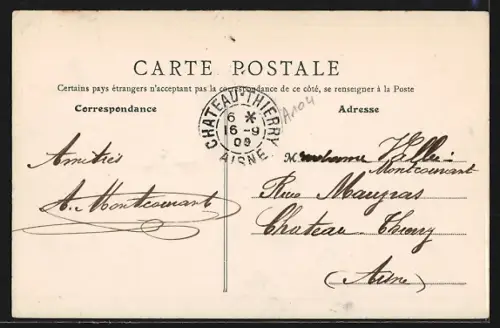 CARTE POSTALE
Certains pays étrangers n'acceptant pas la correspondance de ce côté, se renseigner à la Poste
Correspondance
Adresse
CHATEAU-THIERRY
6 *
16-9
09
AISNE
A104
Amitiés
A. Montcourant
Madame Vallé-
Montcourant
Rue Maugras
Chateau Thierry
(Aisne)